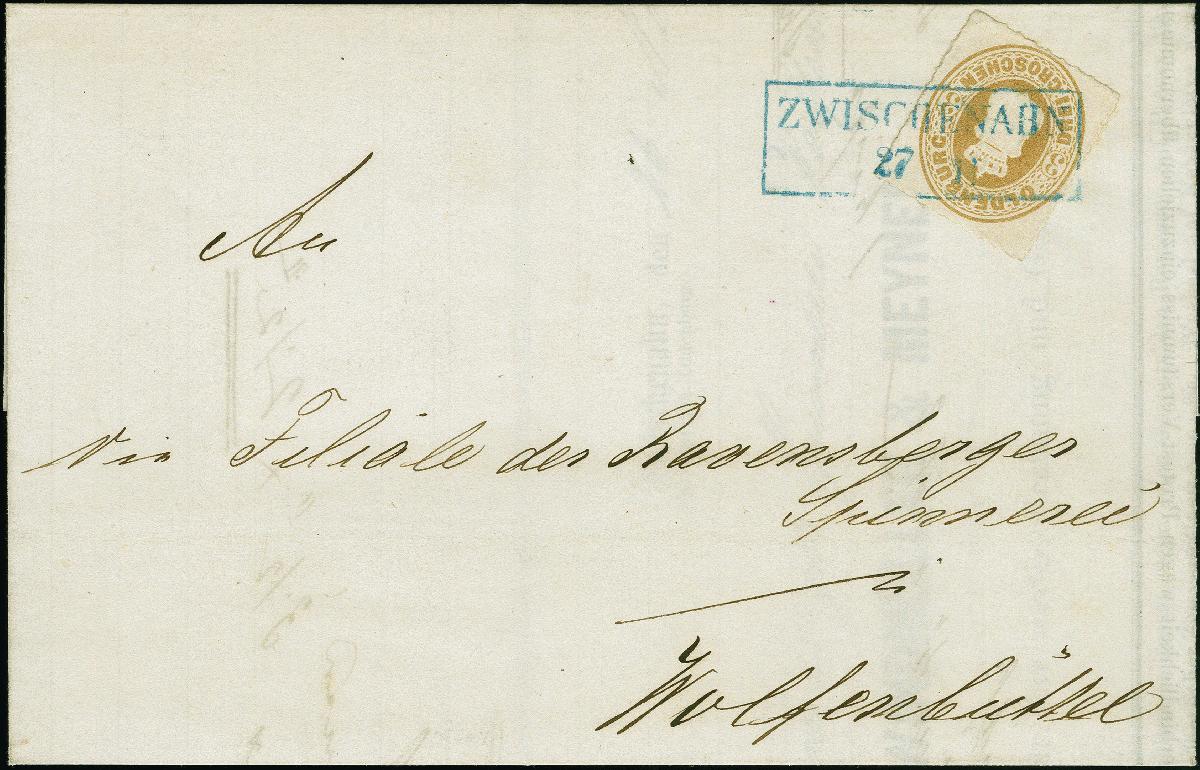 ZWISCHENAHN
27
OLDENBURG 3 DREI GROSCHEN 3
An
die Filiale der Ravensberger
Spinnerei
in
Wolfenbüttel